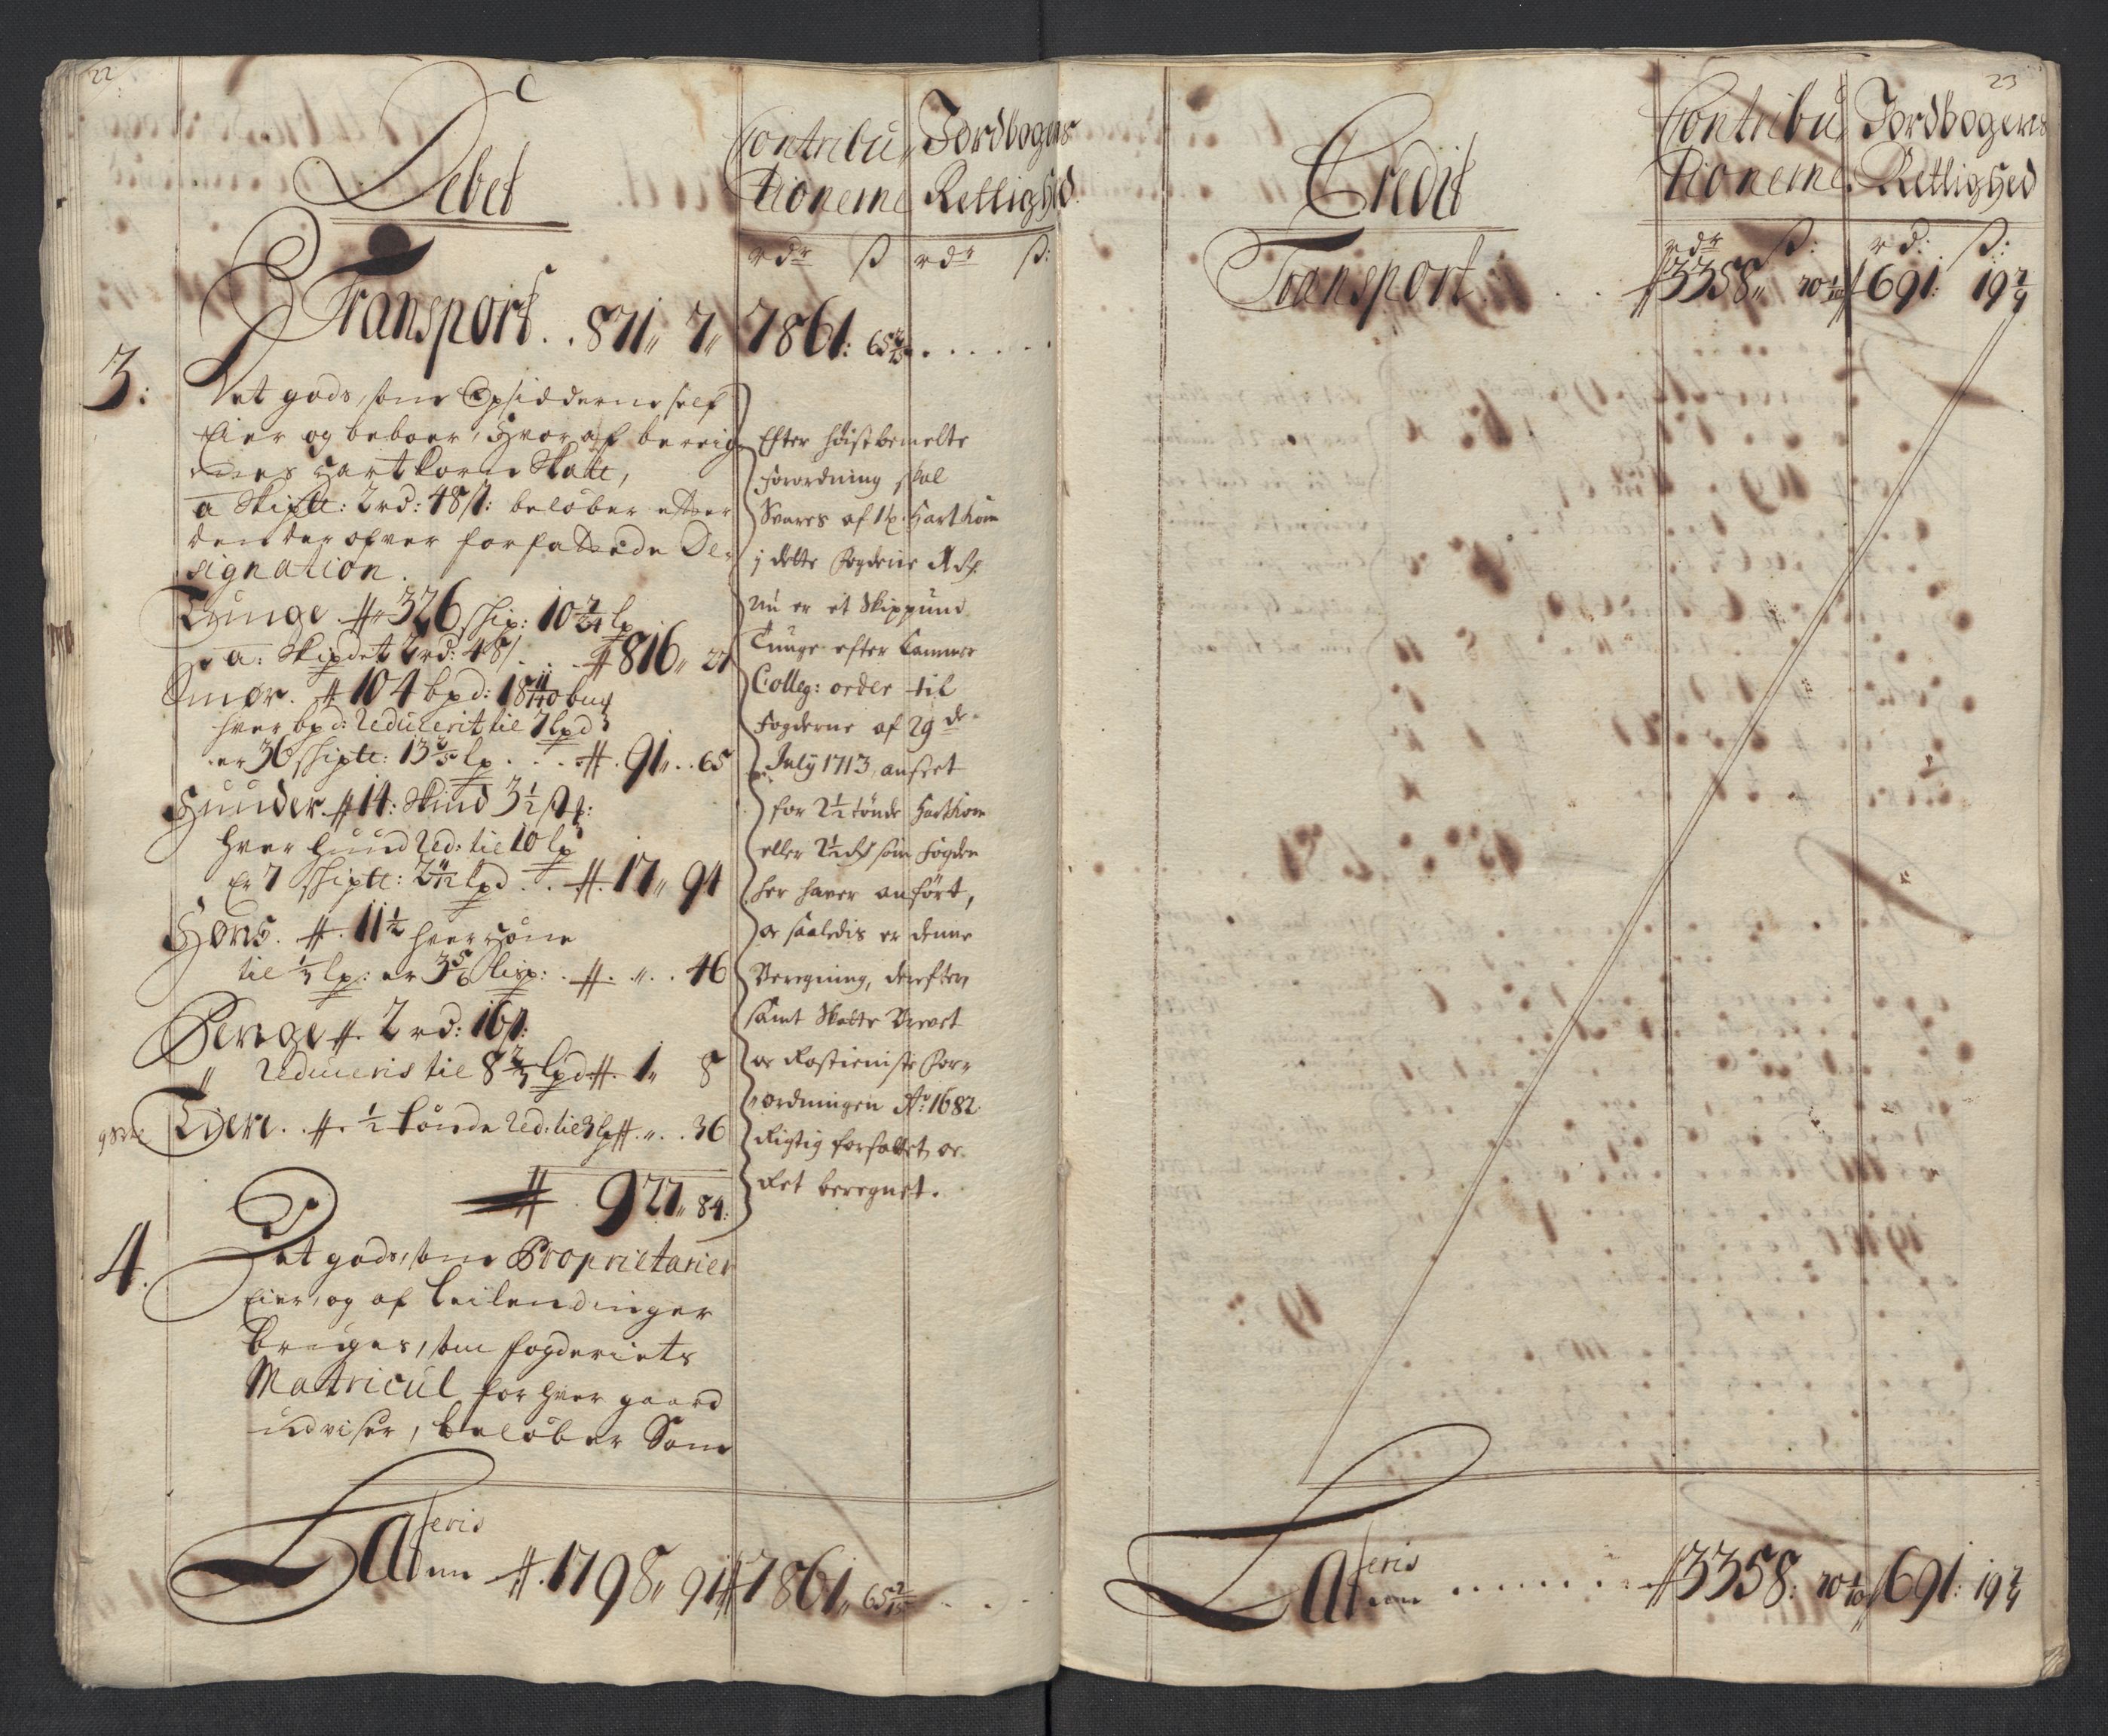 22
Debet
Contribu
tionerne
Jordbogens
Rettighed
rdr ß rdr ß:
Transport . . 871 „ 7 „ 7861: 65
3:
Det gods, som Opsidderne self
Eier og beboer, hvoraf bereig
nes Hartkorn Skatt,
a Skiptt: 2 rd: 48 ß: beløber efter
den der ofver forfattede De-
signation.
Tunge # 326 skip: 10 lp
a: Skipdet 2 rd: 48 ß . . # 816 „ 27
Smør. # 104 bpd: 18 bmj
hver bpd: Reducerit til 7 lpd
er 36 skiptt: 13 lp . . . # . 91 „ . . 65
Huuder # 14: Skind 3½ st:
hver huud Red: til 10 lp
Er 7 skiptt: 2 lpd . . # . 17 „ 94
Høns. # . 11½ hver høne
til ⅓ lp: er 3⅚ lisp: . # . „ . . 46
Penge # . 2 rd: 16 ß:
Reduceris til 8 lpd # . 1 „ 8
Tiere . . # . ½ tønde Red: til 3 lp # . „ . . 36
# . 927 „ 84:
Efter høistbemelte
Forordning skal
Svares af 1 lp. Hartkorn
j dette Fogderie
Nu er et Skippund
Tunge efter Cammer
Colleg: order til
Fogderne af 29 de
July 1713, ansset
for 2½ tønde Hartkorn
eller 2½ som Fogden
her haver anført,
oc saaledis er denne
Beregning, derefter,
samt Skatte Brevet
oc Rostieniste For-
ordningen Ao: 1682
Rigtig forfattet, oc
Ret beregnet.
4.
Det gods, som Proprietarier
Eier, og af Leilendinger
bruges, som fogderiets
Matricul for hver gaard
udviser, beløber Som
Lateris # . 1798 „ 91 # 7861 „ 65 . . .
23
Credit
Contribu
tionerne
Jordbogens
Rettighed
rdr ß: rd: ß:
Transport . . . # 3358 „ 70 # 691: 19
Lateris . . . . . . . # 3358: 70 # 691: 19